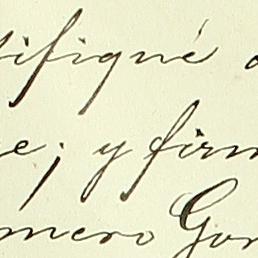 tifiqué
e; y firm
mero Gon